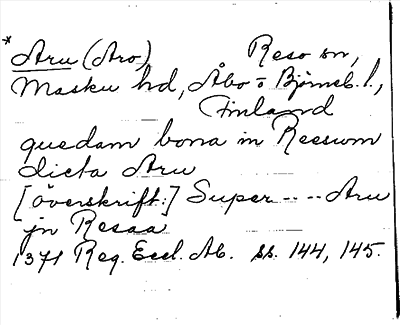 * Aru (Aro) Reso sn,
Masku hd, Åbo o Björneb. l.,
Finland
quedam bona in Reesum
dicta Aru
[överskrift:] Super ---- Aru
jn Resaa
1371 Reg. Eccl. Ab. ss. 144, 145.